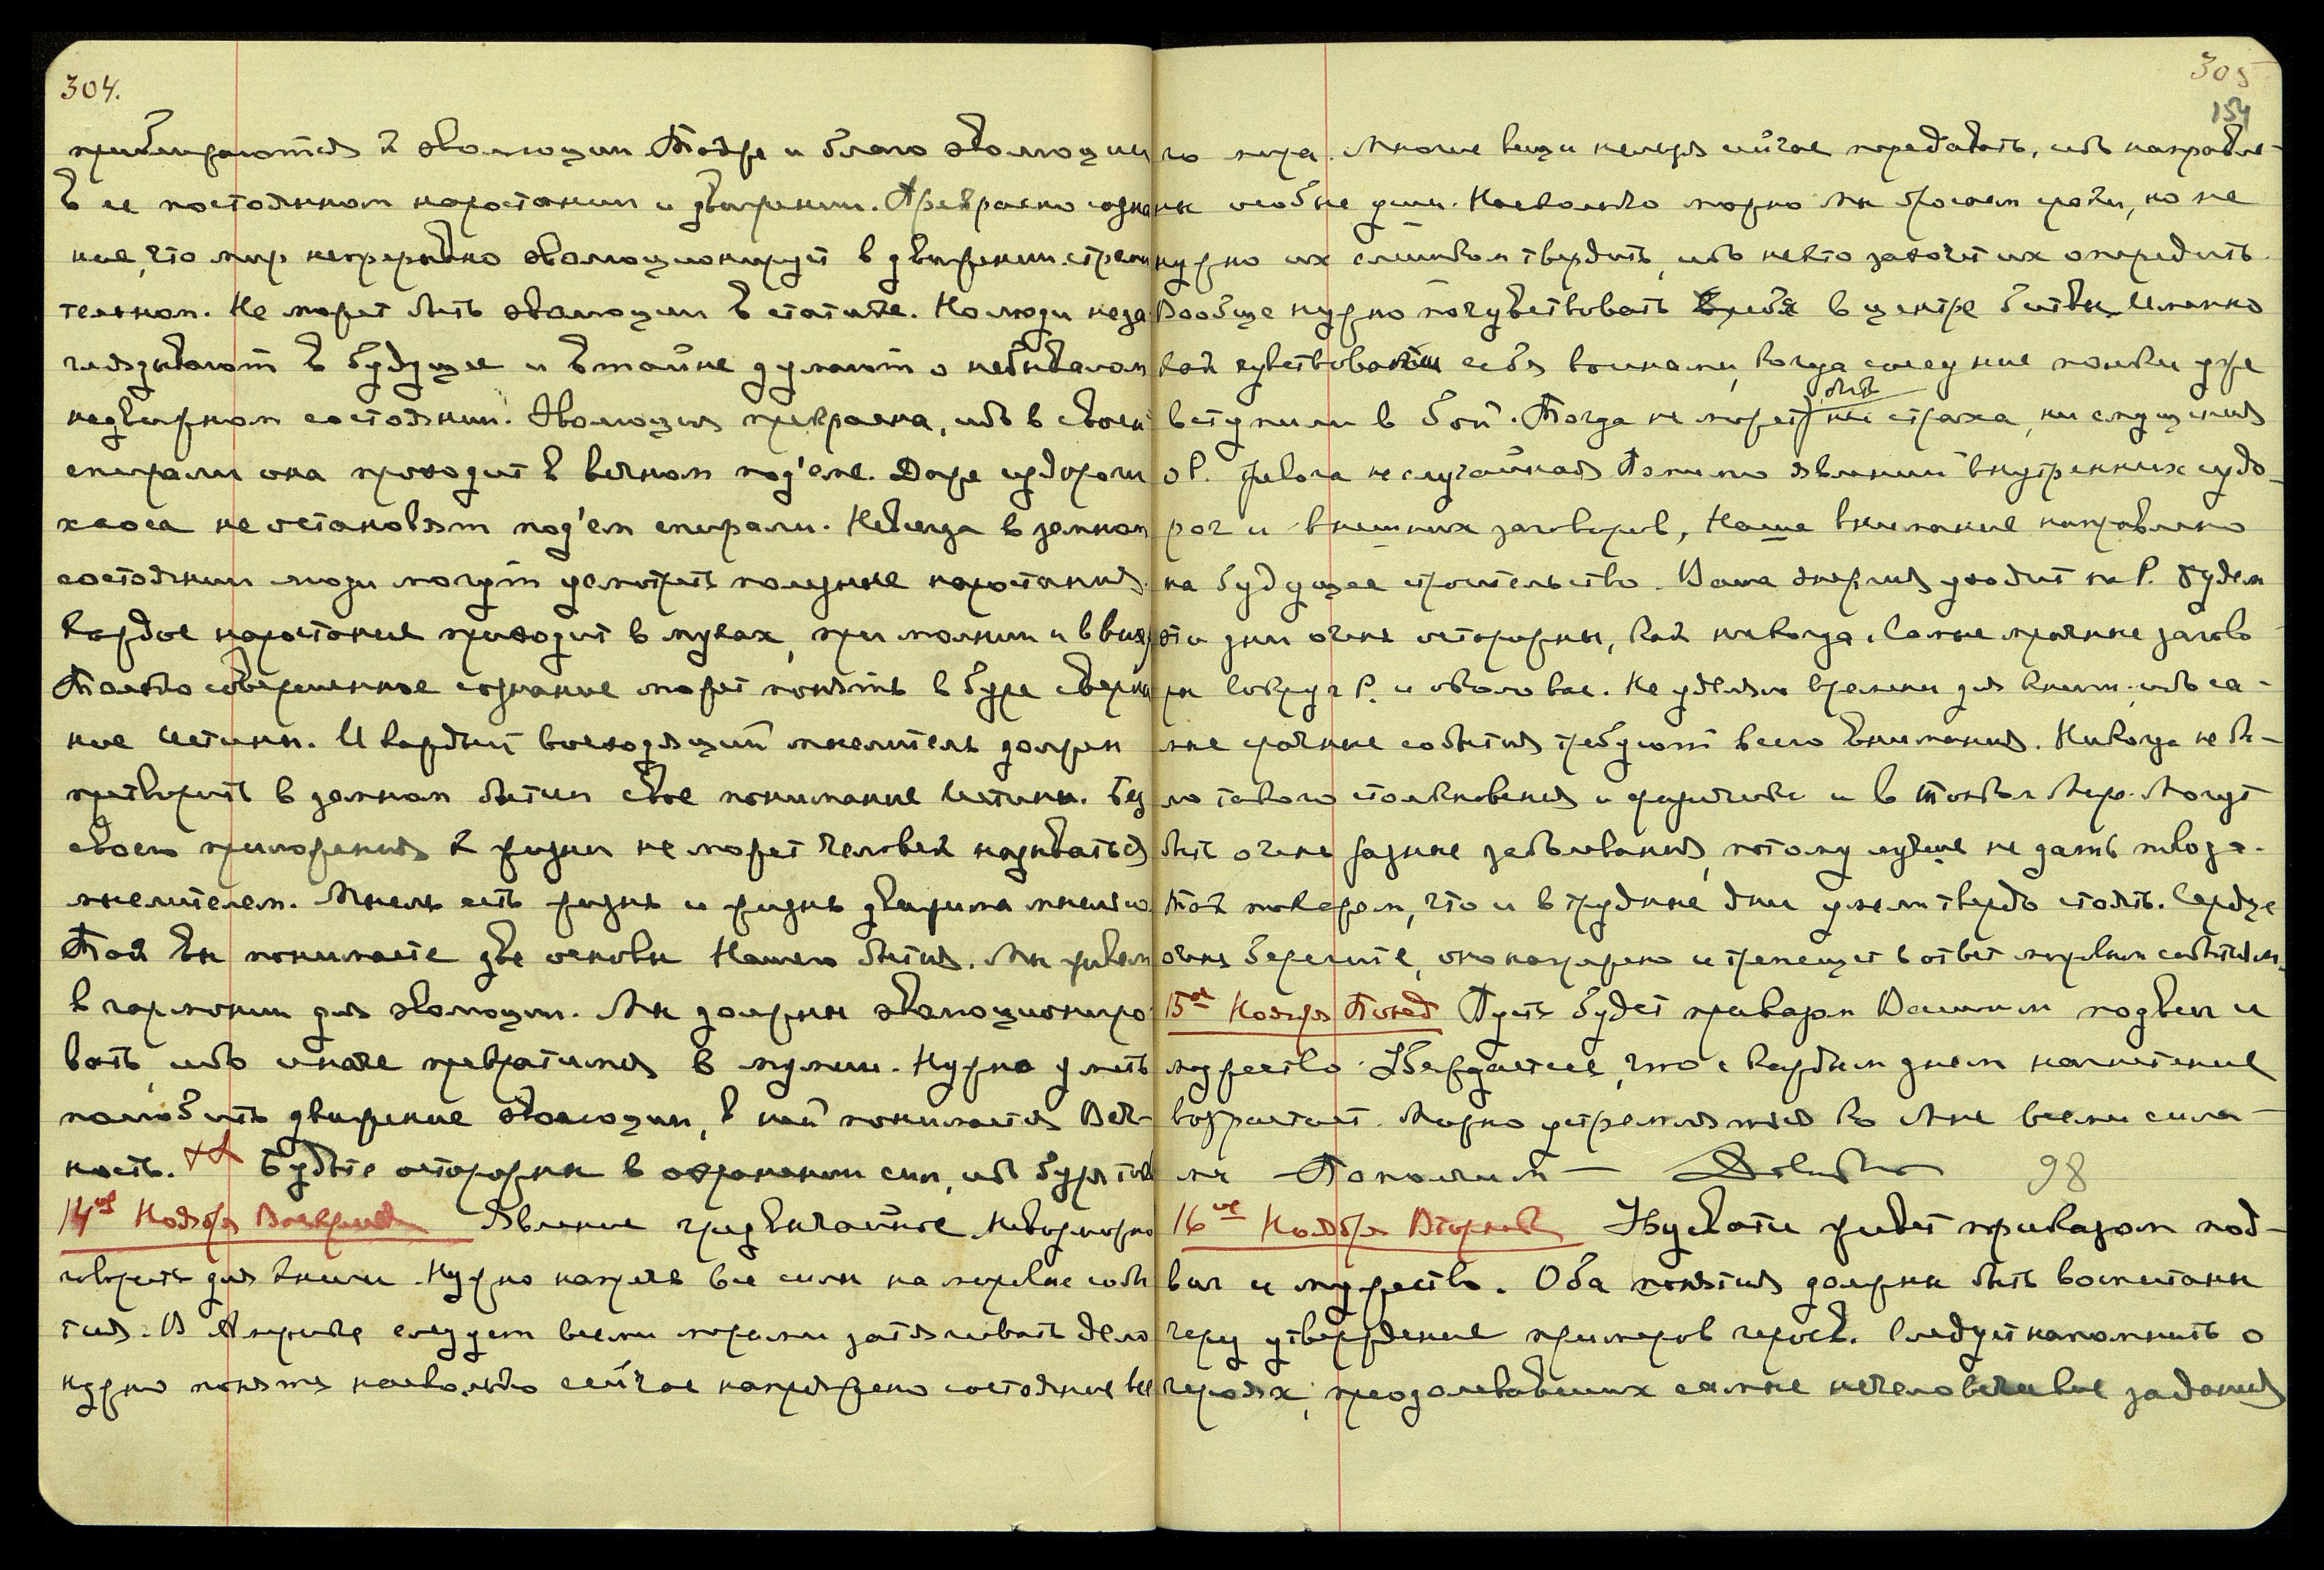 304.
приближаются к эволюции. Также и благо эволюции
в ее постоянном наростании и движении. Прекрасно созна
ние, что мир непрерывно эволюционирует в движении стреми
тельном. Не может быть эволюции в статике. Но люди не за
глядывают в будущее и втайне думают о небывалом
недвижном состоянии. Эволюция прекрасна, ибо в своей
спирали она проходит в вечном под'еме. Даже судороги
хаоса не остановят под'ем спирали. Не всегда в земном
состоянии люди могут усмотреть полезные наростания.
Каждое наростание приходит в муках, при молнии и в
Только совершенное сознание может понять в буре
ние Истины. И каждый восходящий мыслитель должен
претворить в земном бытии свое понимание Истины. Без
своего приложения к жизни не может человек называться
мыслителем. Мысль есть жизнь и жизнь движима мыслью.
Так вы понимаете две основы Нашего бытия. Мы живем
в гармонии для эволюции. Мы должны эволюциониро
вать, ибо иначе превратимся в мумии. Нужно уметь
полюбить движение эволюции, в ней понимается Веч-
ность. Будьте осторожны в охранении сил, ибо буря
14ое Ноября Воскрес. Явление чрезвычайное. Невозможно
говорить для книги. Нужно напрячь все силы на мировые собы
тия. В Америке следует всеми мерами затягивать дело
нужно понять насколько сейчас напряжено состояние все
305
154
го мира. Многие вещи нельзя сейчас передавать, ибо направле-
ны особые уши. Насколько можно Мы бросаем сроки, но не
нужно их слишком твердить, ибо некто захочет их опередить.
Вообще нужно почувствовать себя в центре битвы. Именно
как чувствовали себя воинами, когда соседние полки уже
вступили в бой. Тогда не может быть ни страха, ни смущения
о Р. Тревога не случайная. Помимо явлений внутренних судо-
рог и внешних заговоров, Наше внимание направлено
на будущее строительство. Ваша энергия уходит на Р. Будем
эти дни очень осторожны, как никогда. Самые мрачные загово
ры вокруг Р. и около вас. Не уделяю времени для книги, ибо са-
мые срочные события требуют всего внимания. Никогда не бы-
ло такого столкновения и физически и в тонком Мире. Могут
быть очень разные заболевания, потому лучше не дать повода.
Так покажем, что и в трудные дни умеем твердо стоять. Сердце
очень берегите, оно напряжено и трепещет в ответ мировым событиям.
15ое Ноября Понед. Пусть будет приказом Вашим подвиг и
мужество. Убеждаетесь, что с каждым днем нагнетение
возрастает. Можно устремляться ко Мне всеми сила-
ми 98
16ое Ноября Вторник Урусвати живет приказом под-
виг и мужество. Оба понятия должны быть воспитаны
через утверждение примеров героев. Следует напомнить о
героях, преодолевавших самые нечеловеческие задания